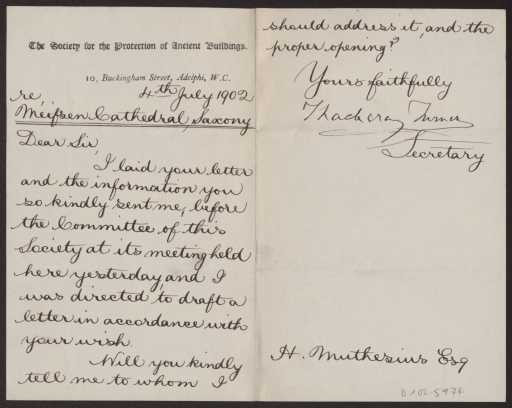 The Society for the Protection of Ancient Buildings.
10, Buckingham Street, Adelphi, W.C.
4th July 1902
re,
Meifsen Cathedral, Saxony
Dear Sir,
I laid your letter
and the information you
so kindly sent me, before
the Committee of this
Society at its meeting held
here yesterday, and I
was directed to draft a
letter in accordance with
your wish.
Will you kindly
tell me to whom I
should address it, and the
proper opening?
Yours faithfully
Thackeray Turner
Secretary
H. Muthesius Esq